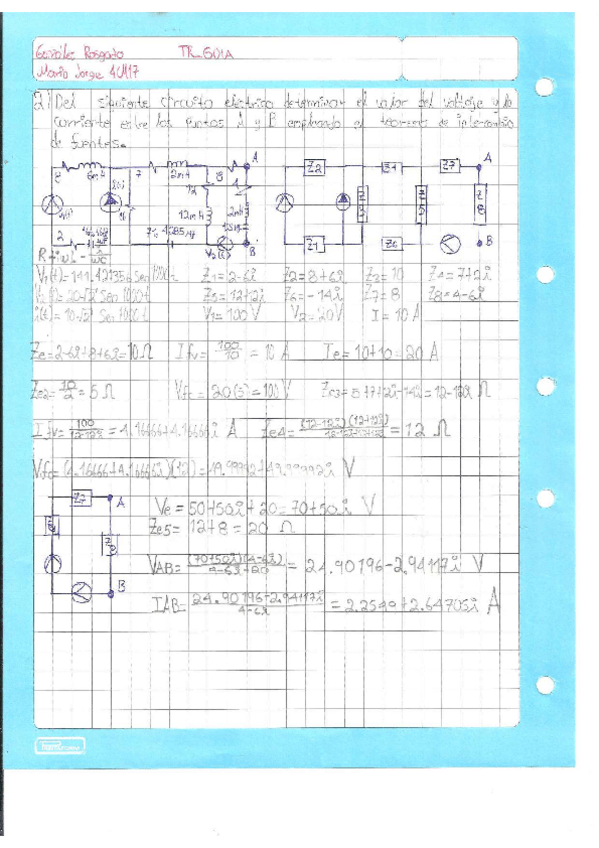 González Rosgado TR_GUIA
Mario Jorge 4CM17
2) Del siguiente circuito electrico determinar el valor del voltaje y la
corriente entre los puntos A y B empleando el teorema de intercambio
de fuentes.
8 6mH 7 2mH 8 A Z2 Z4 Z7 A
12 12mH 2mH Z3 Z5 Z8
2 V2(t) B Z1 Z6 B
V1(t)=141.42135 Sen 1000t Z1=2-6i Z2=8+6i Z3=10 Z4=7+2i
V2(t)=20√2 Sen 1000t Z5=12+12i Z6=-14i Z7=8 Z8=4-6i
i(t)=10√2 Sen 1000t V1=100V V2=20V I=10A
Ze=2-6i+8+6i=10Ω Ifv=100/10=10 A Ie=10+10=20 A
Ze2=10/2=5Ω Vfc=20(5)=100V Ze3=5+7+2i-14i=12-12i Ω
Ifv=100/12-12i=4.16666+4.16666i A Ze4=(12-12i)(12+12i)/12-12i+12+12i=12 Ω
Vfc=(4.16666+4.16666i)(12)=49.99992+49.99992i V
Z7 A
Z8
B
Ve=50+50i+20=70+50i V
Ze5=12+8=20 Ω
VAB=(70+50i)(4-6i)/4-6i+20=24.90196-2.94117i V
IAB=24.90196-2.94117i/4-6i=2.2549+2.64705i A